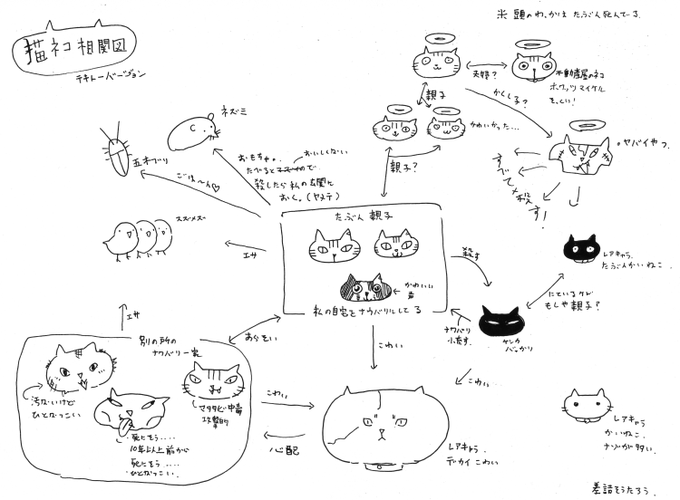 ※ 頭のわっかは たぶん死んでる。
猫ネコ相関図
テキトーバージョン
夫婦?
不動産屋のネコ
ホワッツ マイケル
親子
かくし子?
かわいかった…
ヤバイやつ
すべてを殺す!
親子?
ネズミ
おもちゃ。
おいしくない
殺したら私の玄関に
おく。(ヤメテ)
ごはーん♡
スズメズ
エサ
たぶん 親子
かわいい
私の自宅をナワバリにしてる
殺す
レアキャラ。
たぶんかいねこ。
にているけど
もしや親子?
ナワバリ
ケンカ
バッカリ
エサ
別の所の
ナワバリ一家
あらそい
こわい
こわい
汚ないけど
ひとなつこい
マタタビ中毒
攻撃的
死にそう.....
10年以上前から
死にそう.....
ひとなつこい。
こわい
心配
レアキャラ。
デカイ こわい
レアキャラ
かいねこ。
ナゾが多い。